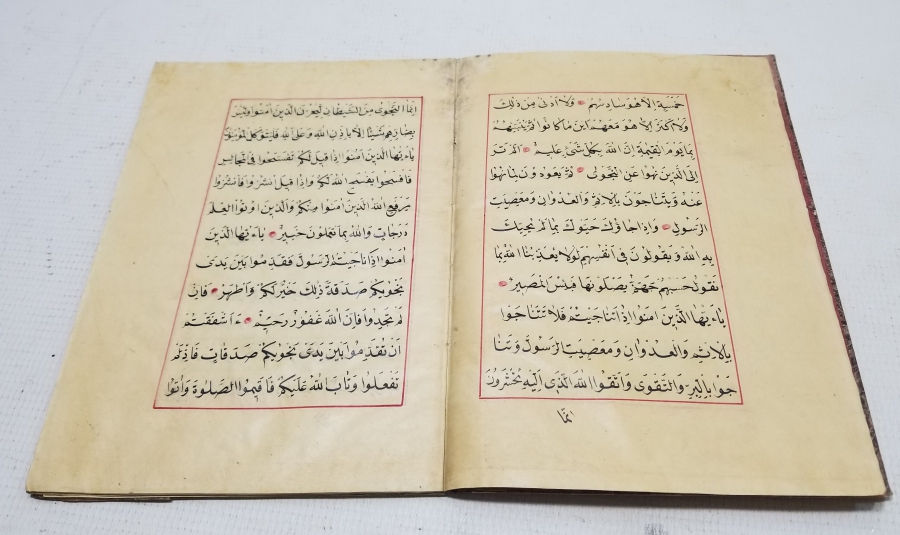 خَمْسَةٍ اِلَّا هُوَ سَادِسُهُمْ وَلَا اَدْنٰى مِنْ ذٰلِكَ
وَلَا اَكْثَرَ اِلَّا هُوَ مَعَهُمْ اَيْنَ مَا كَانُوا ثُمَّ يُنَبِّئُهُمْ
بِمَا يَوْمَ الْقِيٰمَةِ اِنَّ اللّٰهَ بِكُلِّ شَيْءٍ عَلِيمٌ اَلَمْ تَرَ
اِلَى الَّذِينَ نُهُوا عَنِ النَّجْوٰى ثُمَّ يَعُودُونَ لِمَا نُهُوا
عَنْهُ وَيَتَنَاجَوْنَ بِالْاِثْمِ وَالْعُدْوَانِ وَمَعْصِيَتِ
الرَّسُولِ وَاِذَا جَاؤُكَ حَيَّوْكَ بِمَا لَمْ يُحَيِّكَ
بِهِ اللّٰهُ وَيَقُولُونَ فِى اَنْفُسِهِمْ لَوْلَا يُعَذِّبُنَا اللّٰهُ بِمَا
نَقُولُ حَسْبُهُمْ جَهَنَّمُ يَصْلَوْنَهَا فَبِئْسَ الْمَصِيرُ
يَاءَيُّهَا الَّذِينَ اٰمَنُوا اِذَا تَنَاجَيْتُمْ فَلَا تَتَنَاجَوْا
بِالْاِثْمِ وَالْعُدْوَانِ وَمَعْصِيَتِ الرَّسُولِ وَتَنَا
جَوْا بِالْبِرِّ وَالتَّقْوٰى وَاتَّقُوا اللّٰهَ الَّذِى اِلَيْهِ تُحْشَرُونَ
اِنَّمَا
اِنَّمَا النَّجْوٰى مِنَ الشَّيْطَانِ لِيَحْزُنَ الَّذِينَ اٰمَنُوا وَلَيْسَ
بِضَارِّهِمْ شَيْئًا اِلَّا بِاِذْنِ اللّٰهِ وَعَلَى اللّٰهِ فَلْيَتَوَكَّلِ الْمُؤْمِنُونَ
يَاءَيُّهَا الَّذِينَ اٰمَنُوا اِذَا قِيلَ لَكُمْ تَفَسَّحُوا فِى الْمَجَالِسِ
فَافْسَحُوا يَفْسَحِ اللّٰهُ لَكُمْ وَاِذَا قِيلَ انْشُزُوا فَانْشُزُوا
يَرْفَعِ اللّٰهُ الَّذِينَ اٰمَنُوا مِنْكُمْ وَالَّذِينَ اُوتُوا الْعِلْمَ
دَرَجَاتٍ وَاللّٰهُ بِمَا تَعْمَلُونَ خَبِيرٌ يَاءَيُّهَا الَّذِينَ
اٰمَنُوا اِذَا نَاجَيْتُمُ الرَّسُولَ فَقَدِّمُوا بَيْنَ يَدَىْ
نَجْوٰيكُمْ صَدَقَةً ذٰلِكَ خَيْرٌ لَكُمْ وَاَطْهَرُ فَاِنْ
لَمْ تَجِدُوا فَاِنَّ اللّٰهَ غَفُورٌ رَحِيمٌ ءَاَشْفَقْتُمْ
اَنْ تُقَدِّمُوا بَيْنَ يَدَىْ نَجْوٰيكُمْ صَدَقَاتٍ فَاِذْ لَمْ
تَفْعَلُوا وَتَابَ اللّٰهُ عَلَيْكُمْ فَاَقِيمُوا الصَّلٰوةَ وَاٰتُوا